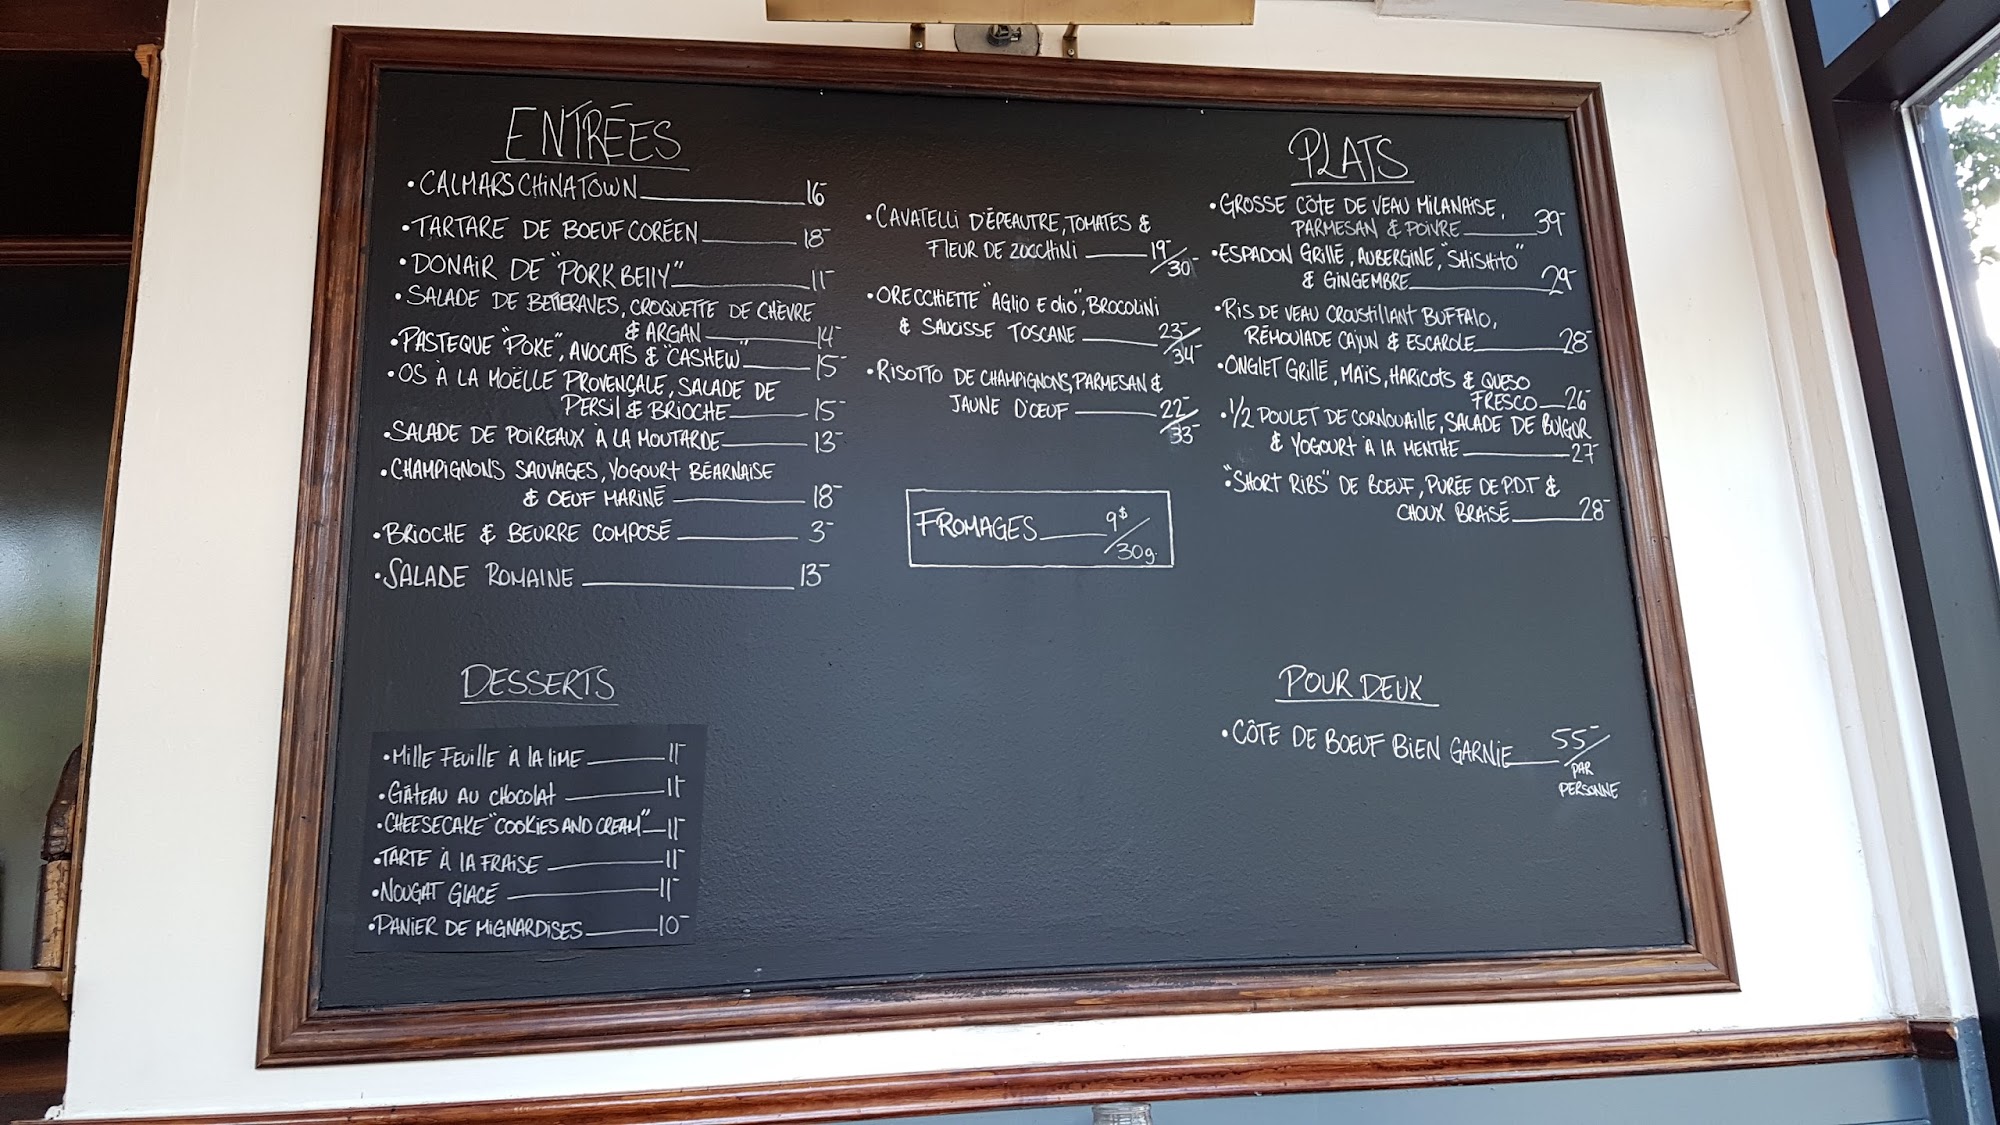 ENTRÉES
• CALMARS CHINATOWN 16-
• TARTARE DE BOEUF CORÉEN 18-
• DONAIR DE "PORK BELLY" 11-
• SALADE DE BETTERAVES, CROQUETTE DE CHÈVRE
& ARGAN 14-
• PASTEQUE "POKE", AVOCATS & "CASHEW" 15-
• OS À LA MOËLLE PROVENÇALE, SALADE DE
PERSIL & BRIOCHE 15-
• SALADE DE POIREAUX À LA MOUTARDE 13-
• CHAMPIGNONS SAUVAGES, YOGOURT BÉARNAISE
& OEUF MARINÉ 18-
• BRIOCHE & BEURRE COMPOSÉ 3-
• SALADE ROMAINE 13-
• CAVATELLI D'ÉPEAUTRE, TOMATES &
FLEUR DE ZUCCHINI 19-/30-
• ORECCHIETTE "AGLIO E OLIO", BROCOLINI
& SAUCISSE TOSCANE 23-/34-
• RISOTTO DE CHAMPIGNONS, PARMESAN &
JAUNE D'OEUF 22-/33-
FROMAGES 9$/30g.
PLATS
• GROSSE CÔTE DE VEAU MILANAISE,
PARMESAN & POIVRE 39-
• ESPADON GRILLÉ, AUBERGINE, "SHISHITO"
& GINGEMBRE 29-
• RIS DE VEAU CROUSTILLANT BUFFALO,
RÉMOULADE CAJUN & ESCAROLE 28-
• ONGLET GRILLÉ, MAÏS, HARICOTS & QUESO
FRESCO 26-
• 1/2 POULET DE CORNOUAILLE, SALADE DE BULGUR
& YOGOURT À LA MENTHE 27-
• "SHORT RIBS" DE BOEUF, PURÉE DE P.D.T &
CHOUX BRAISÉ 28-
DESSERTS
• MILLE FEUILLE À LA LIME 11-
• GÂTEAU AU CHOCOLAT 11-
• CHEESECAKE "COOKIES AND CREAM" 11-
• TARTE À LA FRAISE 11-
• NOUGAT GLACÉ 11-
• PANIER DE MIGNARDISES 10-
POUR DEUX
• CÔTE DE BOEUF BIEN GARNIE 55-/
PAR
PERSONNE